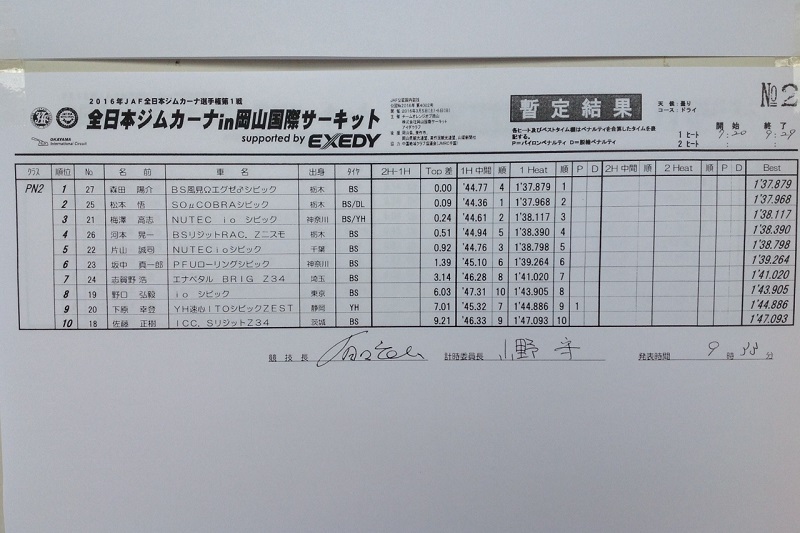 2016年JAF全日本ジムカーナ選手権第1戦
全日本ジムカーナin岡山国際サーキット
supported by EXEDY
OKAYAMA International Circuit
暫定結果
各ヒート及びベストタイム欄はペナルティを合算したタイムを表記する。
P=パイロンペナルティ D=脱輪ペナルティ
天候：曇り
コース：ドライ
No 2
開始 終了
1ヒート 9:20 9:29
2ヒート : :
クラス 順位 No 名前 車名 出身 タイヤ 2H-1H Top差 1H中間 順 1 Heat 順 P D 2H中間 順 2 Heat 順 P D Best
PN2 1 27 森田 陽介 BS風見Ωエグゼδシビック 栃木 BS 0.00 '44.77 4 1'37.879 1 1'37.879
2 25 松本 悟 SOμCOBRAシビック 栃木 BS/DL 0.09 '44.36 1 1'37.968 2 1'37.968
3 21 梅澤 高志 NUTEC io シビック 神奈川 BS/YH 0.24 '44.61 2 1'38.117 3 1'38.117
4 26 河本 晃一 BSリジットRAC．Zニスモ 栃木 BS 0.51 '44.94 5 1'38.390 4 1'38.390
5 22 片山 誠司 NUTECioシビック 千葉 BS 0.92 '44.76 3 1'38.798 5 1'38.798
6 23 坂中 真一郎 PFUローリングシビック 神奈川 BS 1.39 '45.10 6 1'39.264 6 1'39.264
7 24 志賀野 浩 エナペタル BRIG Z34 埼玉 BS 3.14 '46.28 8 1'41.020 7 1'41.020
8 19 野口 弘毅 io シビック 東京 BS 6.03 '47.31 10 1'43.905 8 1'43.905
9 20 下原 幸登 YH速心ITOシビックZEST 静岡 YH 7.01 '45.32 7 1'44.886 9 1 1'44.886
10 18 佐藤 正樹 ICC．SリジットZ34 茨城 BS 9.21 '46.33 9 1'47.093 10 1'47.093
競技長 計時委員長 小野 守 発表時間 9 時 33 分